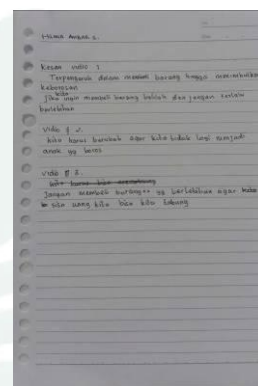 Kesan vidio 1
Terpengaruh dalam membeli barang hingga menimbulkan
keborosan
kita
Jika ingin membeli barang bolleh dan jangan terlalu
berlebihan
Vidio 2
kita harus berubah agar kita tidak lagi menjadi
anak yg boros
Vidio 3.
Jangan membeli barang yg berlebihan agar
sisa uang kita bisa kita tabung